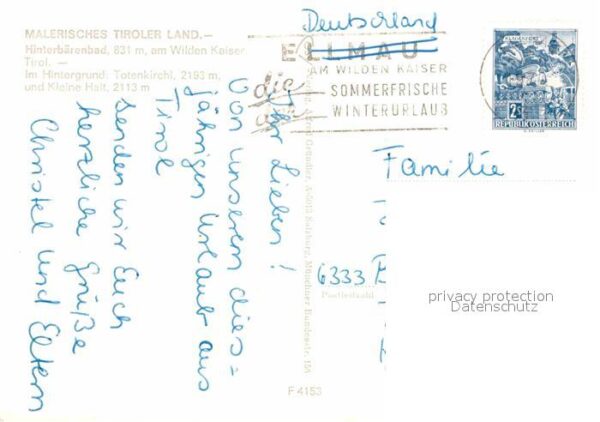 MALERISCHES TIROLER LAND.—
Hinterbärenbad, 831 m, am Wilden Kaiser
Tirol.—
Im Hintergrund: Totenkirchl, 2193 m,
und Kleine Halt, 2113 m
Ihr Lieben!
Von unserem dies-
jährigen Urlaub aus
Tirol
senden wir Euch
herzliche Grüße
Christel und Eltern
Deutschland
ELLMAU
AM WILDEN KAISER
die
SOMMERFRISCHE
WINTERURLAUB
2S
REPUBLIK ÖSTERREICH
Familie
6333
Postleitzahl
privacy protection
Datenschutz
Salzburg, Münchner Bundesstr.
F 4153